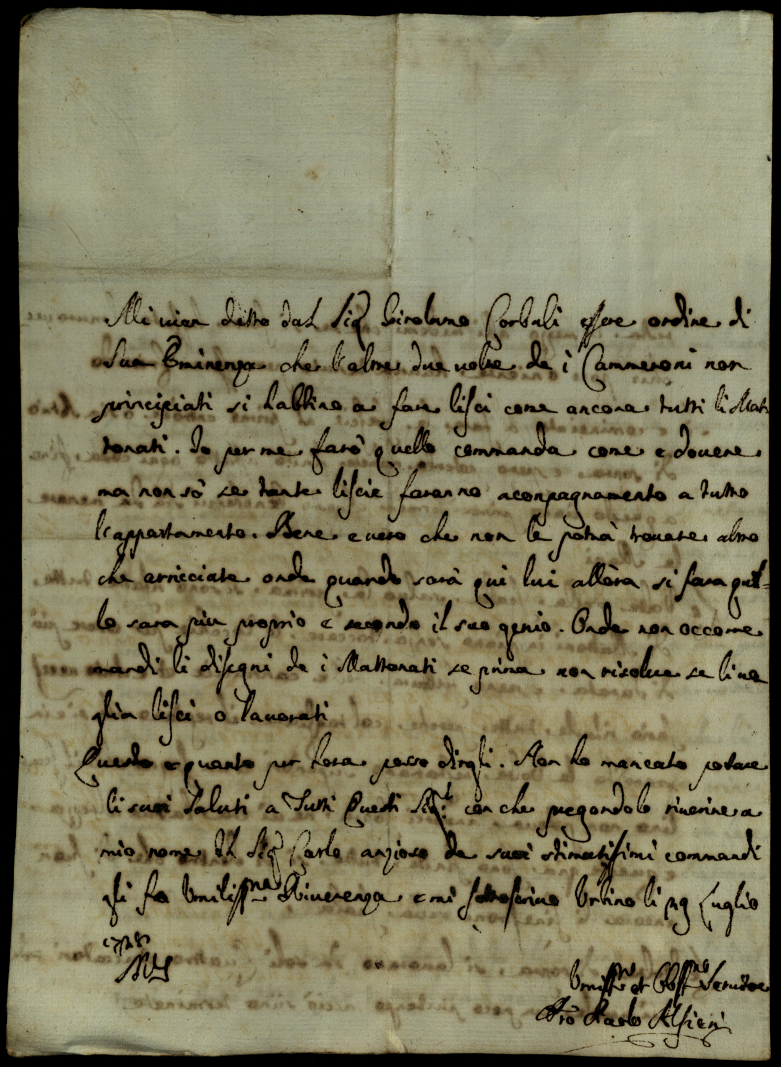 Mi vien ditto dal Sig Girolamo Corbuli essere ordine di
Sua Eminenza che l'altre due volte de i Cammeroni non
principiati si habbino a fare lisci come ancora tutti li Mat
tonati. Io per me farò quello commanda come e dovere
ma non sò se tante liscie faranno acompagnamento a tutto
l'appartamento. Bene e vero che non le potrà trovare altro
che arricciate onde quando sarà qui lui allòra si fara quel=
lo sara piu proprio e secondo il suo genio. Onde non occorre
mandi li disegni de i Mattonati se prima non risolve se li vo
glia lisci o lavorati
Questo e quanto per hora posso dirgli. Non ho mancato portare
li suoi saluti a Tutti Questi Sig.ri con che pregandolo riverire a
mio nome Il Sig Carlo anzioso de suoi stimatissimi commandi
gli fo Umiliss.ma Riverenza e mi sottoscrivo Urbino li 29 Luglio
Umiss.mo et Obb.mo Servitore
Paolo Alfieri